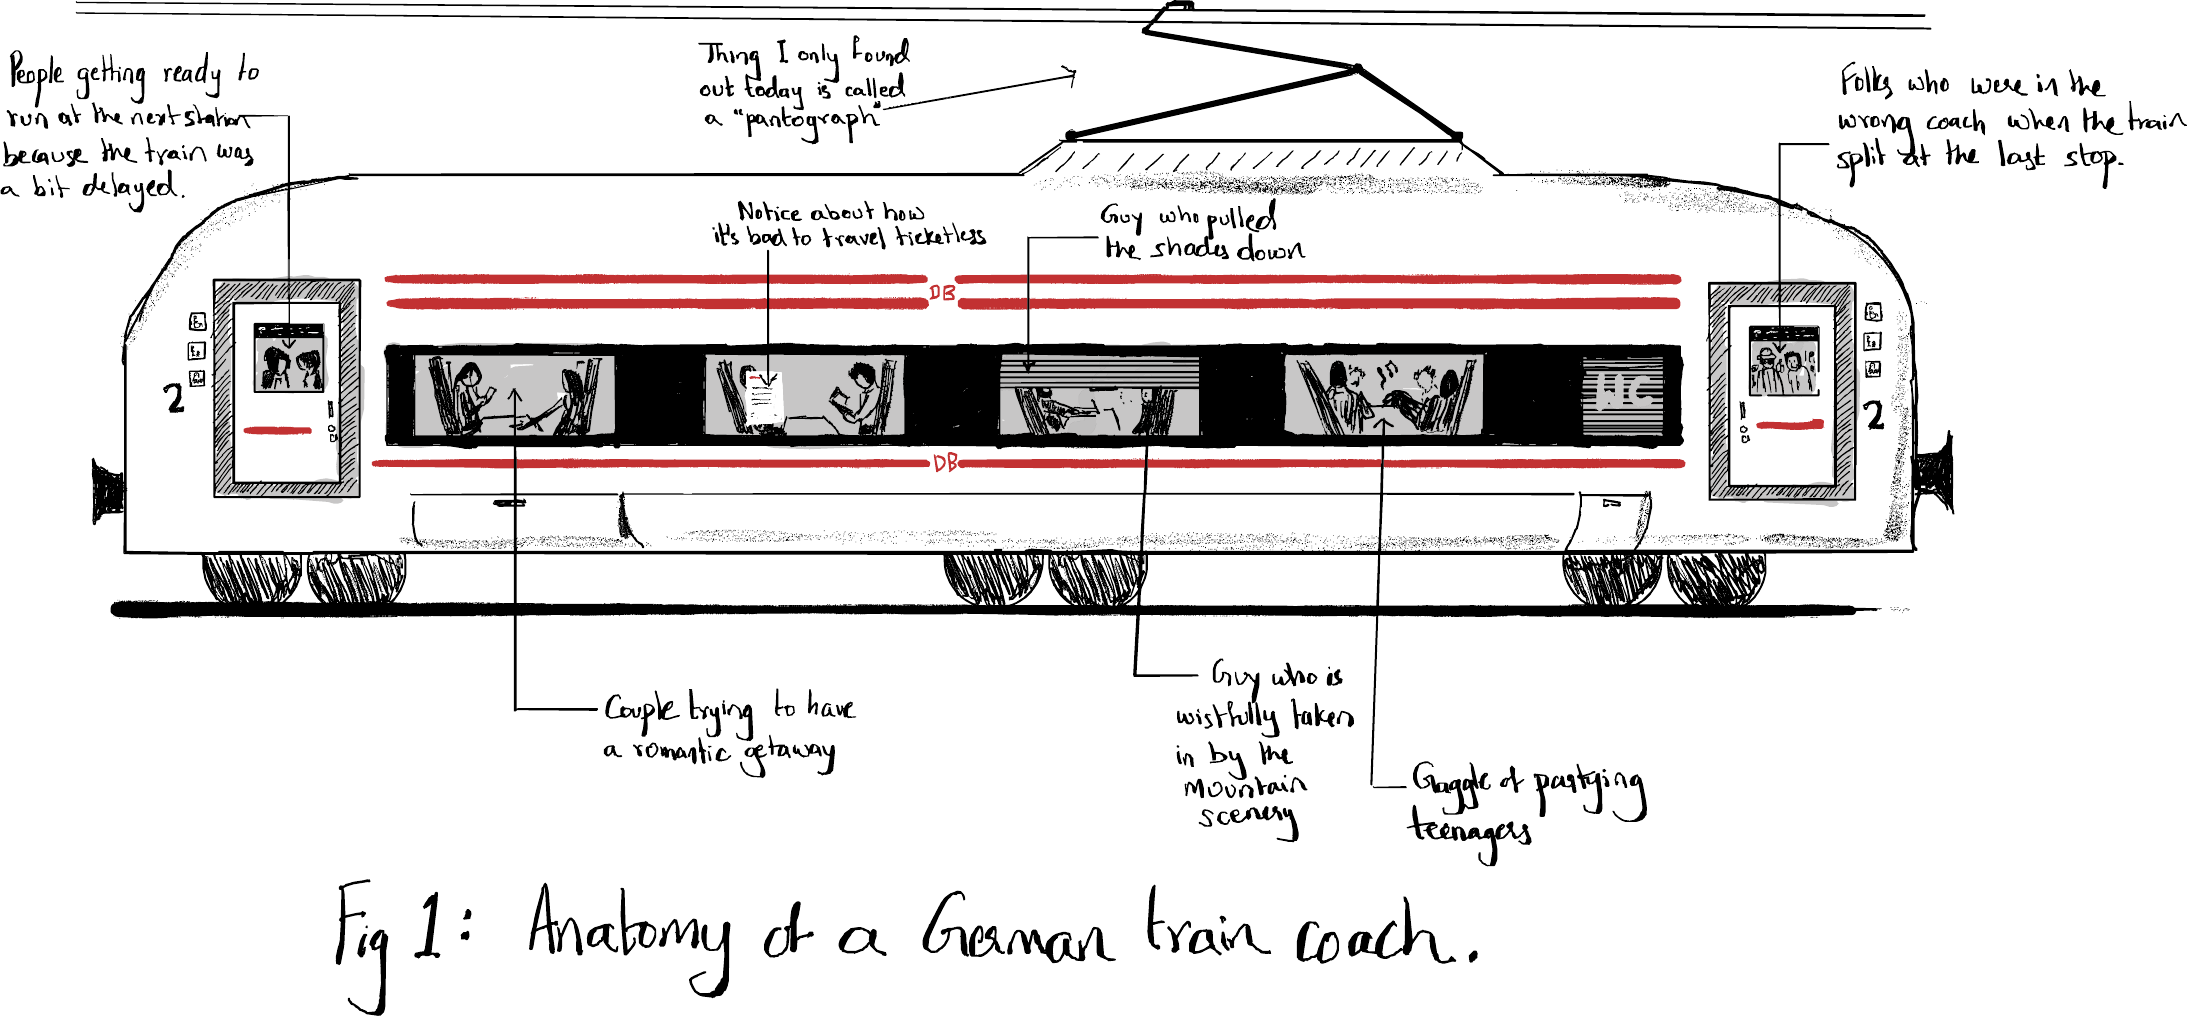 People getting ready to
run at the next station
because the train was
a bit delayed.
Thing I only found
out today is called
a "pantograph"
Folks who were in the
wrong coach when the train
split at the last stop.
Notice about how
it's bad to travel ticketless
Guy who pulled
the shades down
DB
2
WC
2
DB
Couple trying to have
a romantic getaway
Guy who is
wistfully taken
in by the
mountain
scenery
Gaggle of partying
teenagers
Fig 1: Anatomy of a German train coach.